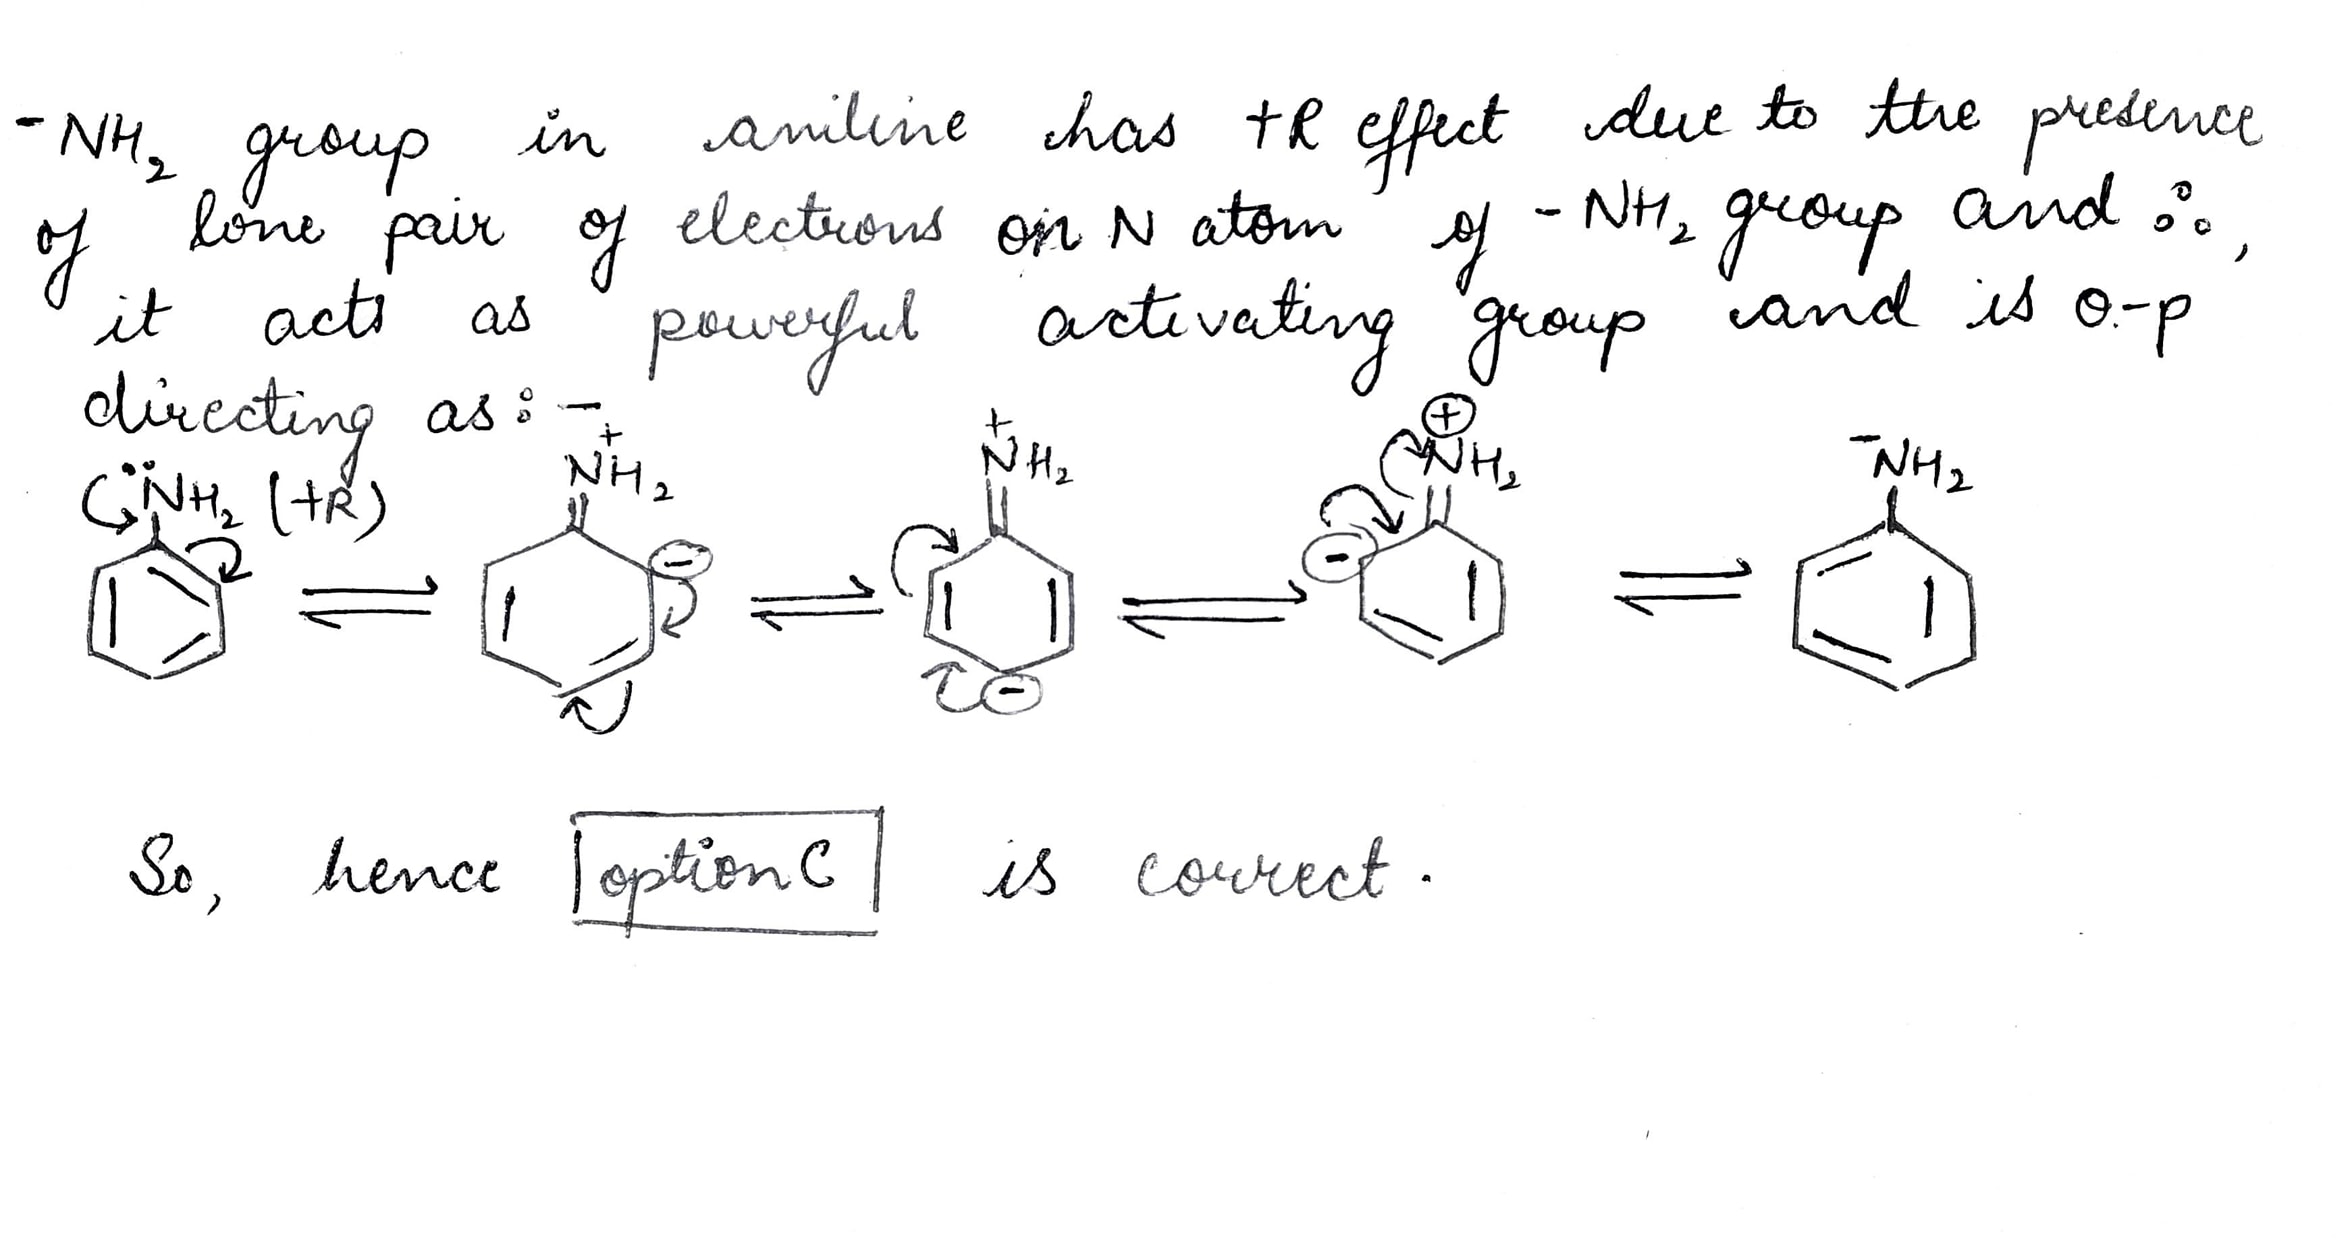 -NH₂ group in aniline has +R effect due to the presence
of lone pair of electrons on N atom of -NH₂ group and ∴,
it acts as powerful activating group and is o-p
directing as:-
N̈H₂ (+R) ⇌ +NH₂ - ⇌ +NH₂ - ⇌ + NH₂ - ⇌ -NH₂
So, hence option C is correct.